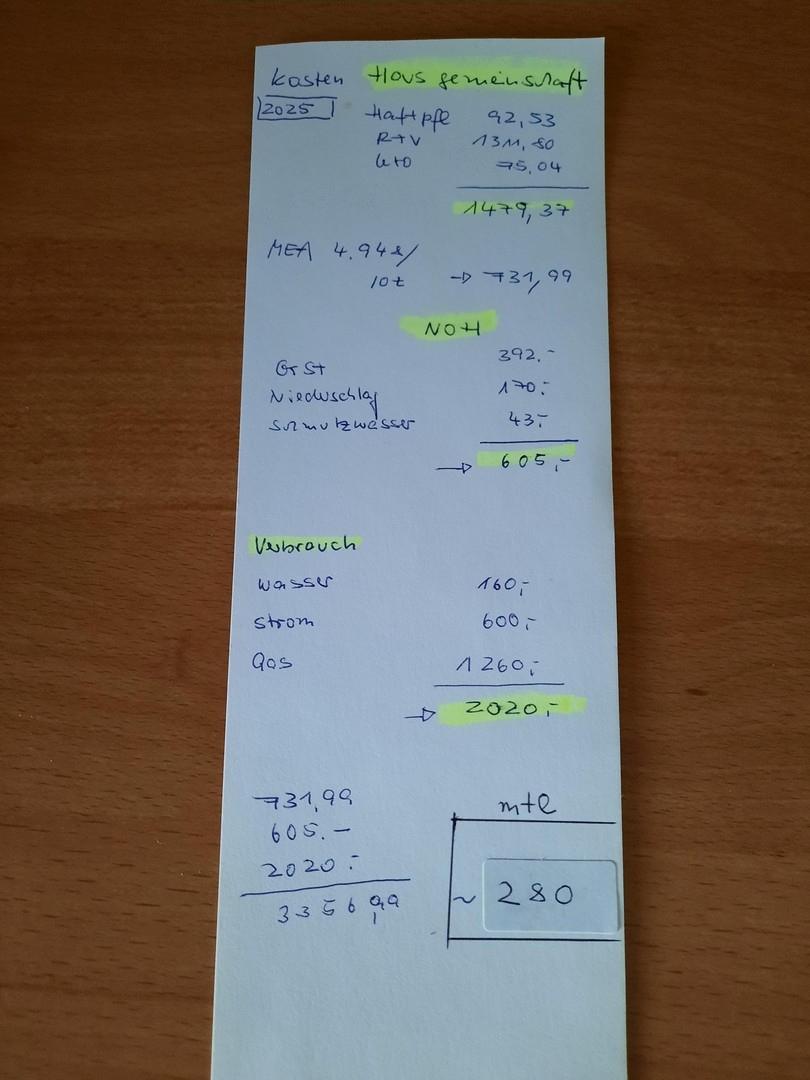 Kosten Hausgemeinschaft
2025
Haftpfl 92,53
R+V 1311,80
75,04
1479,37
MEA 4.948/
10t → 731,99
NOH
GrSt 392.-
Niederschlag 170.-
Schmutzwasser 43,-
→ 605,-
Verbrauch
Wasser 160,-
Strom 600,-
Gas 1260,-
→ 2020,-
731,99
605.-
2020.-
3356,99
mtl
~ 280